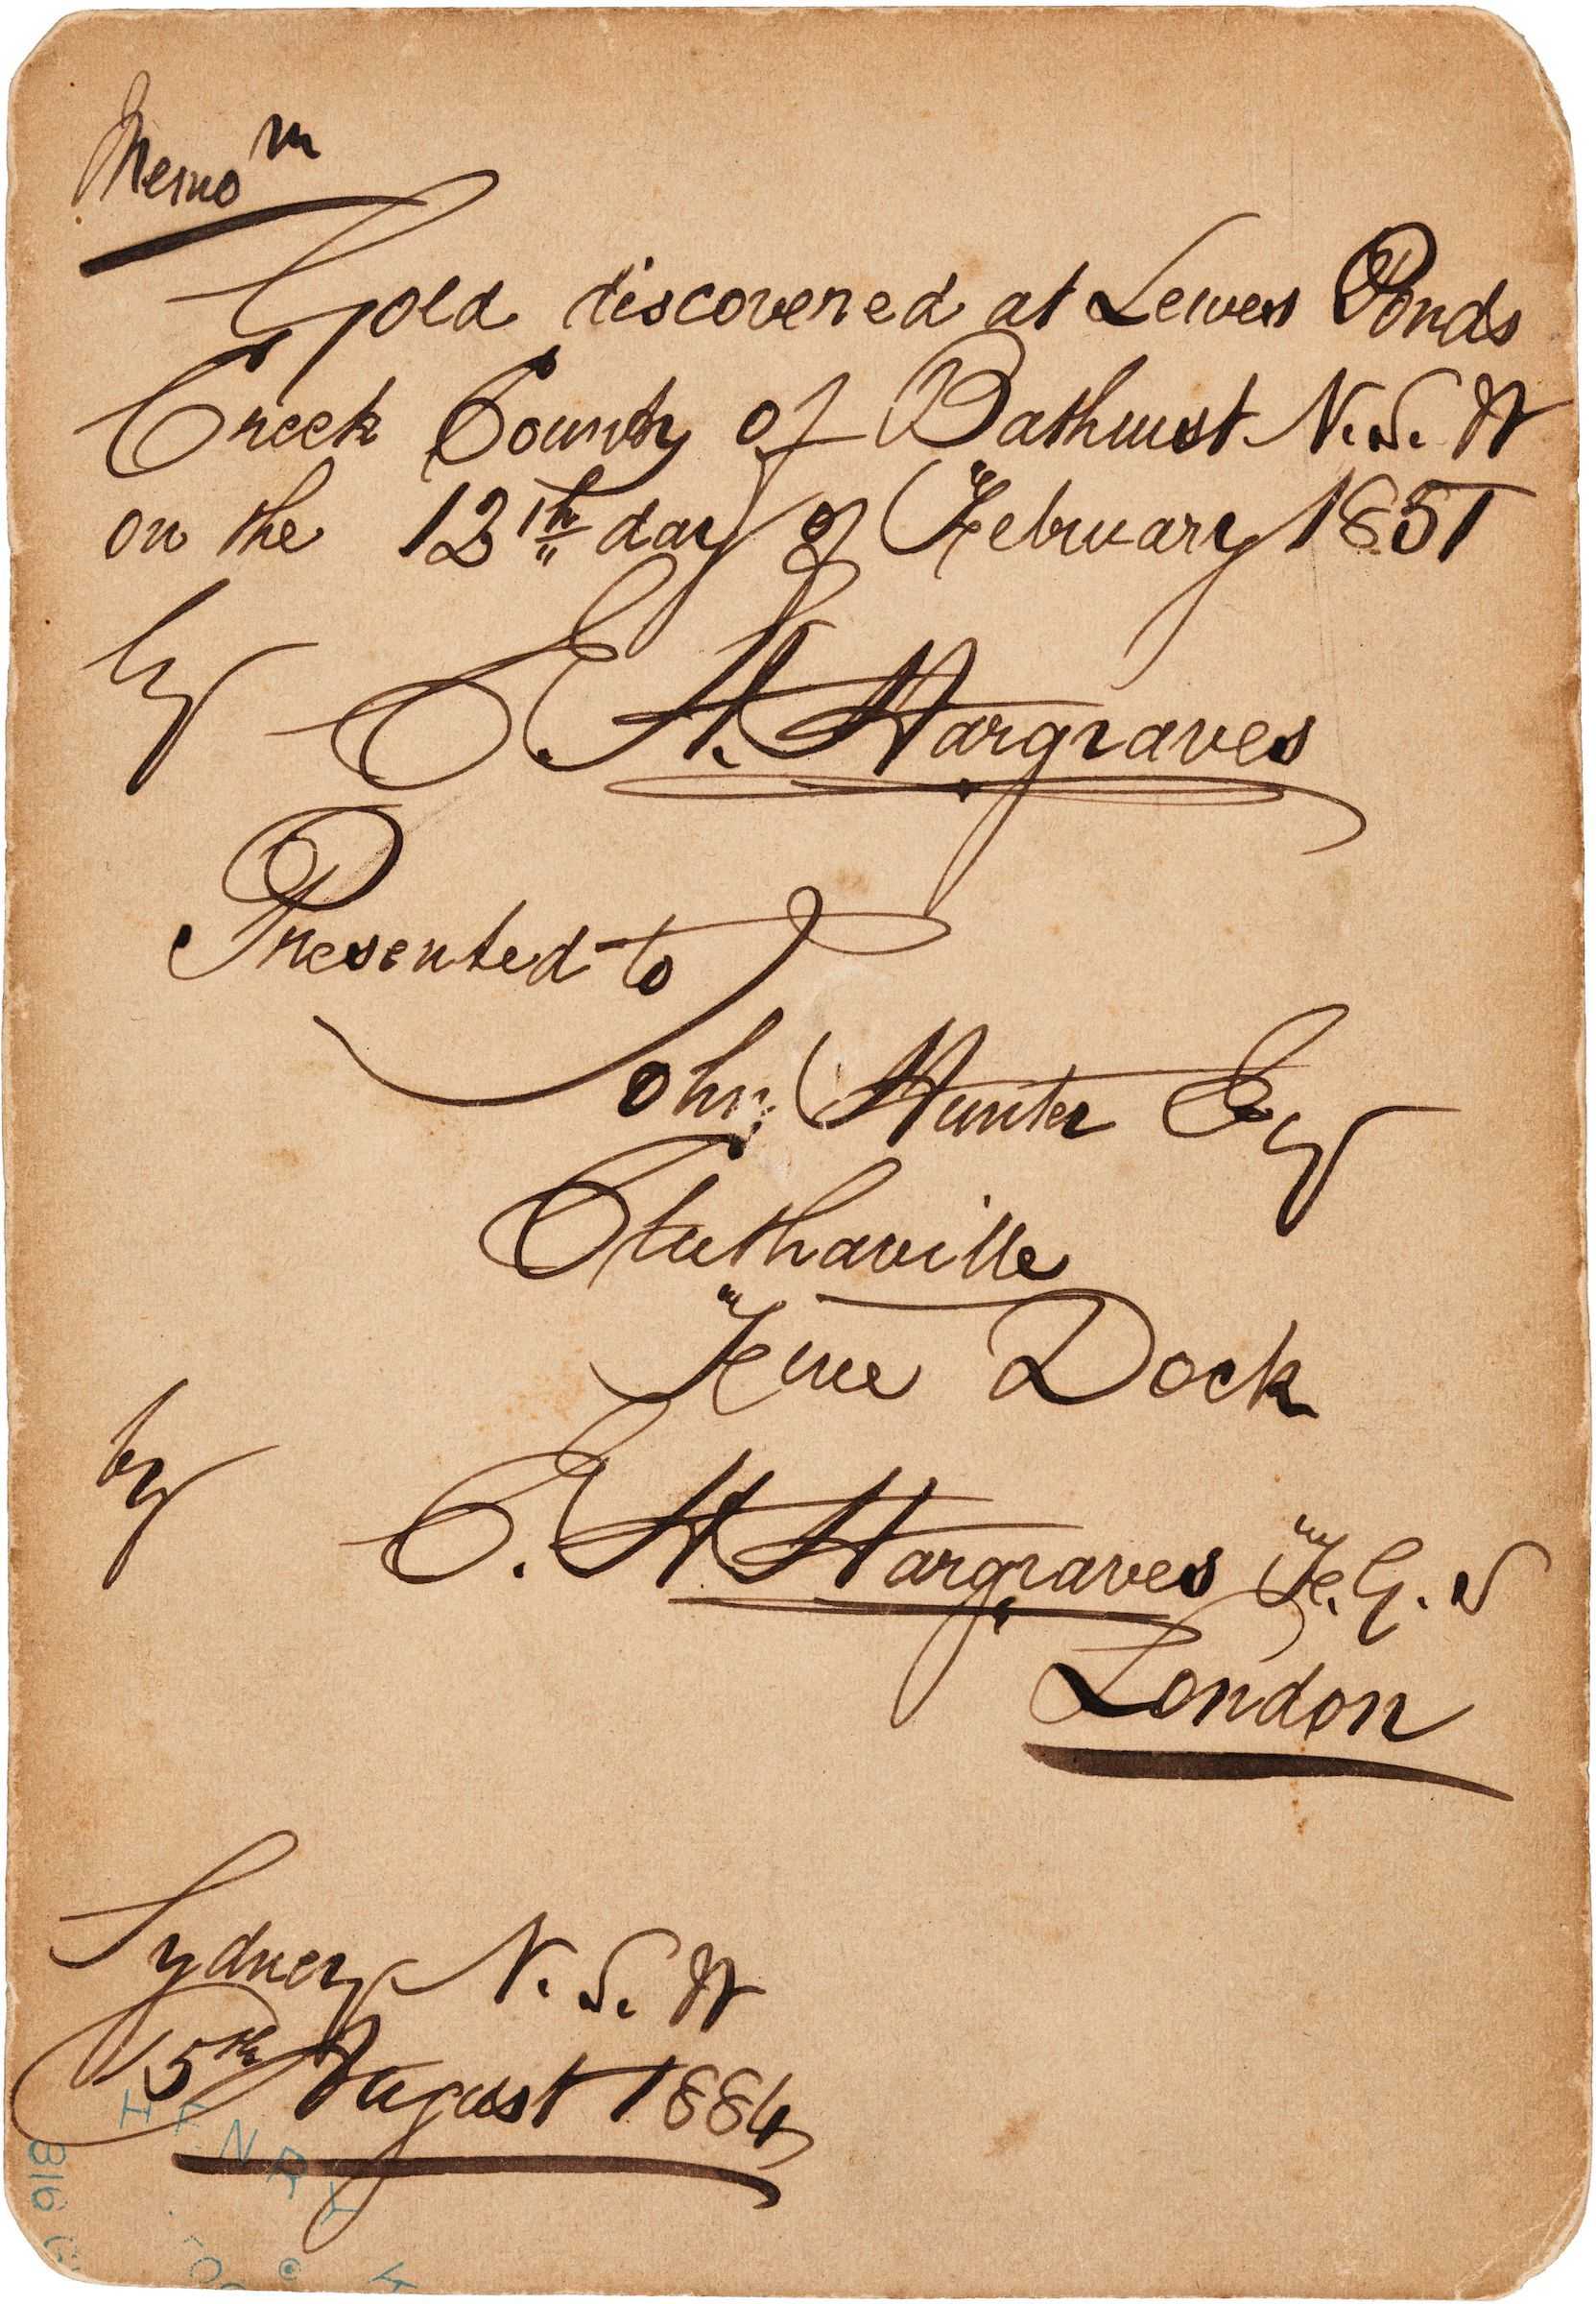 Memo m
Gold discovered at Lewes Ponds
Creek County of Bathurst N.S.W
on the 12th day of February 1851
by E. H. Hargraves
Presented to
John Hunter Esq
Cluthaville
Five Dock
by E. H Hargraves F.G.S
London
Sydney N.S.W
15th August 1884
HENRY
816